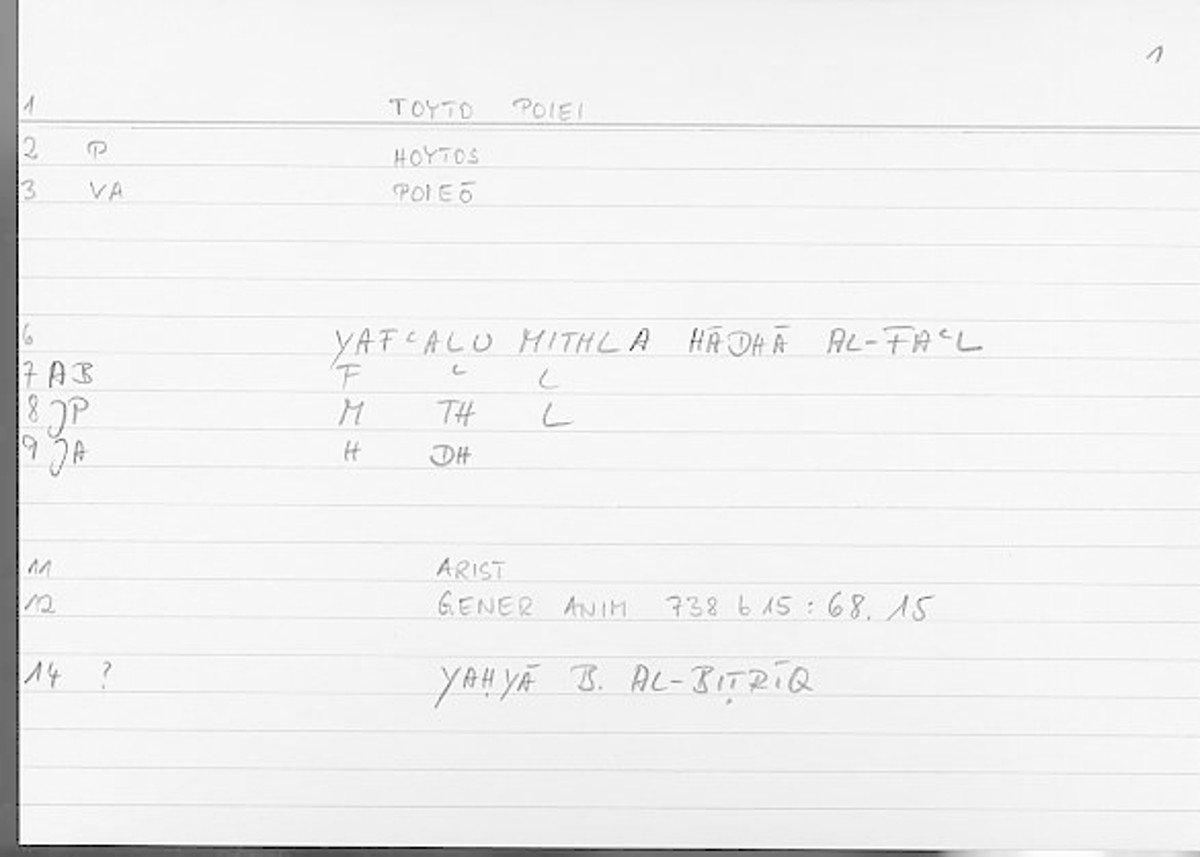 1
1 TOYTO POIEI
2 P HOYTOS
3 VA POIEŌ
6 YAFʿALU MITHLA HĀDHĀ AL-FAʿL
7 AB F ʿ L
8 JP M TH L
9 JA H DH
11 ARIST
12 GENER ANIM 738 b 15 : 68. 15
14 ? YAḤYĀ B. AL-BIṬRĪQ